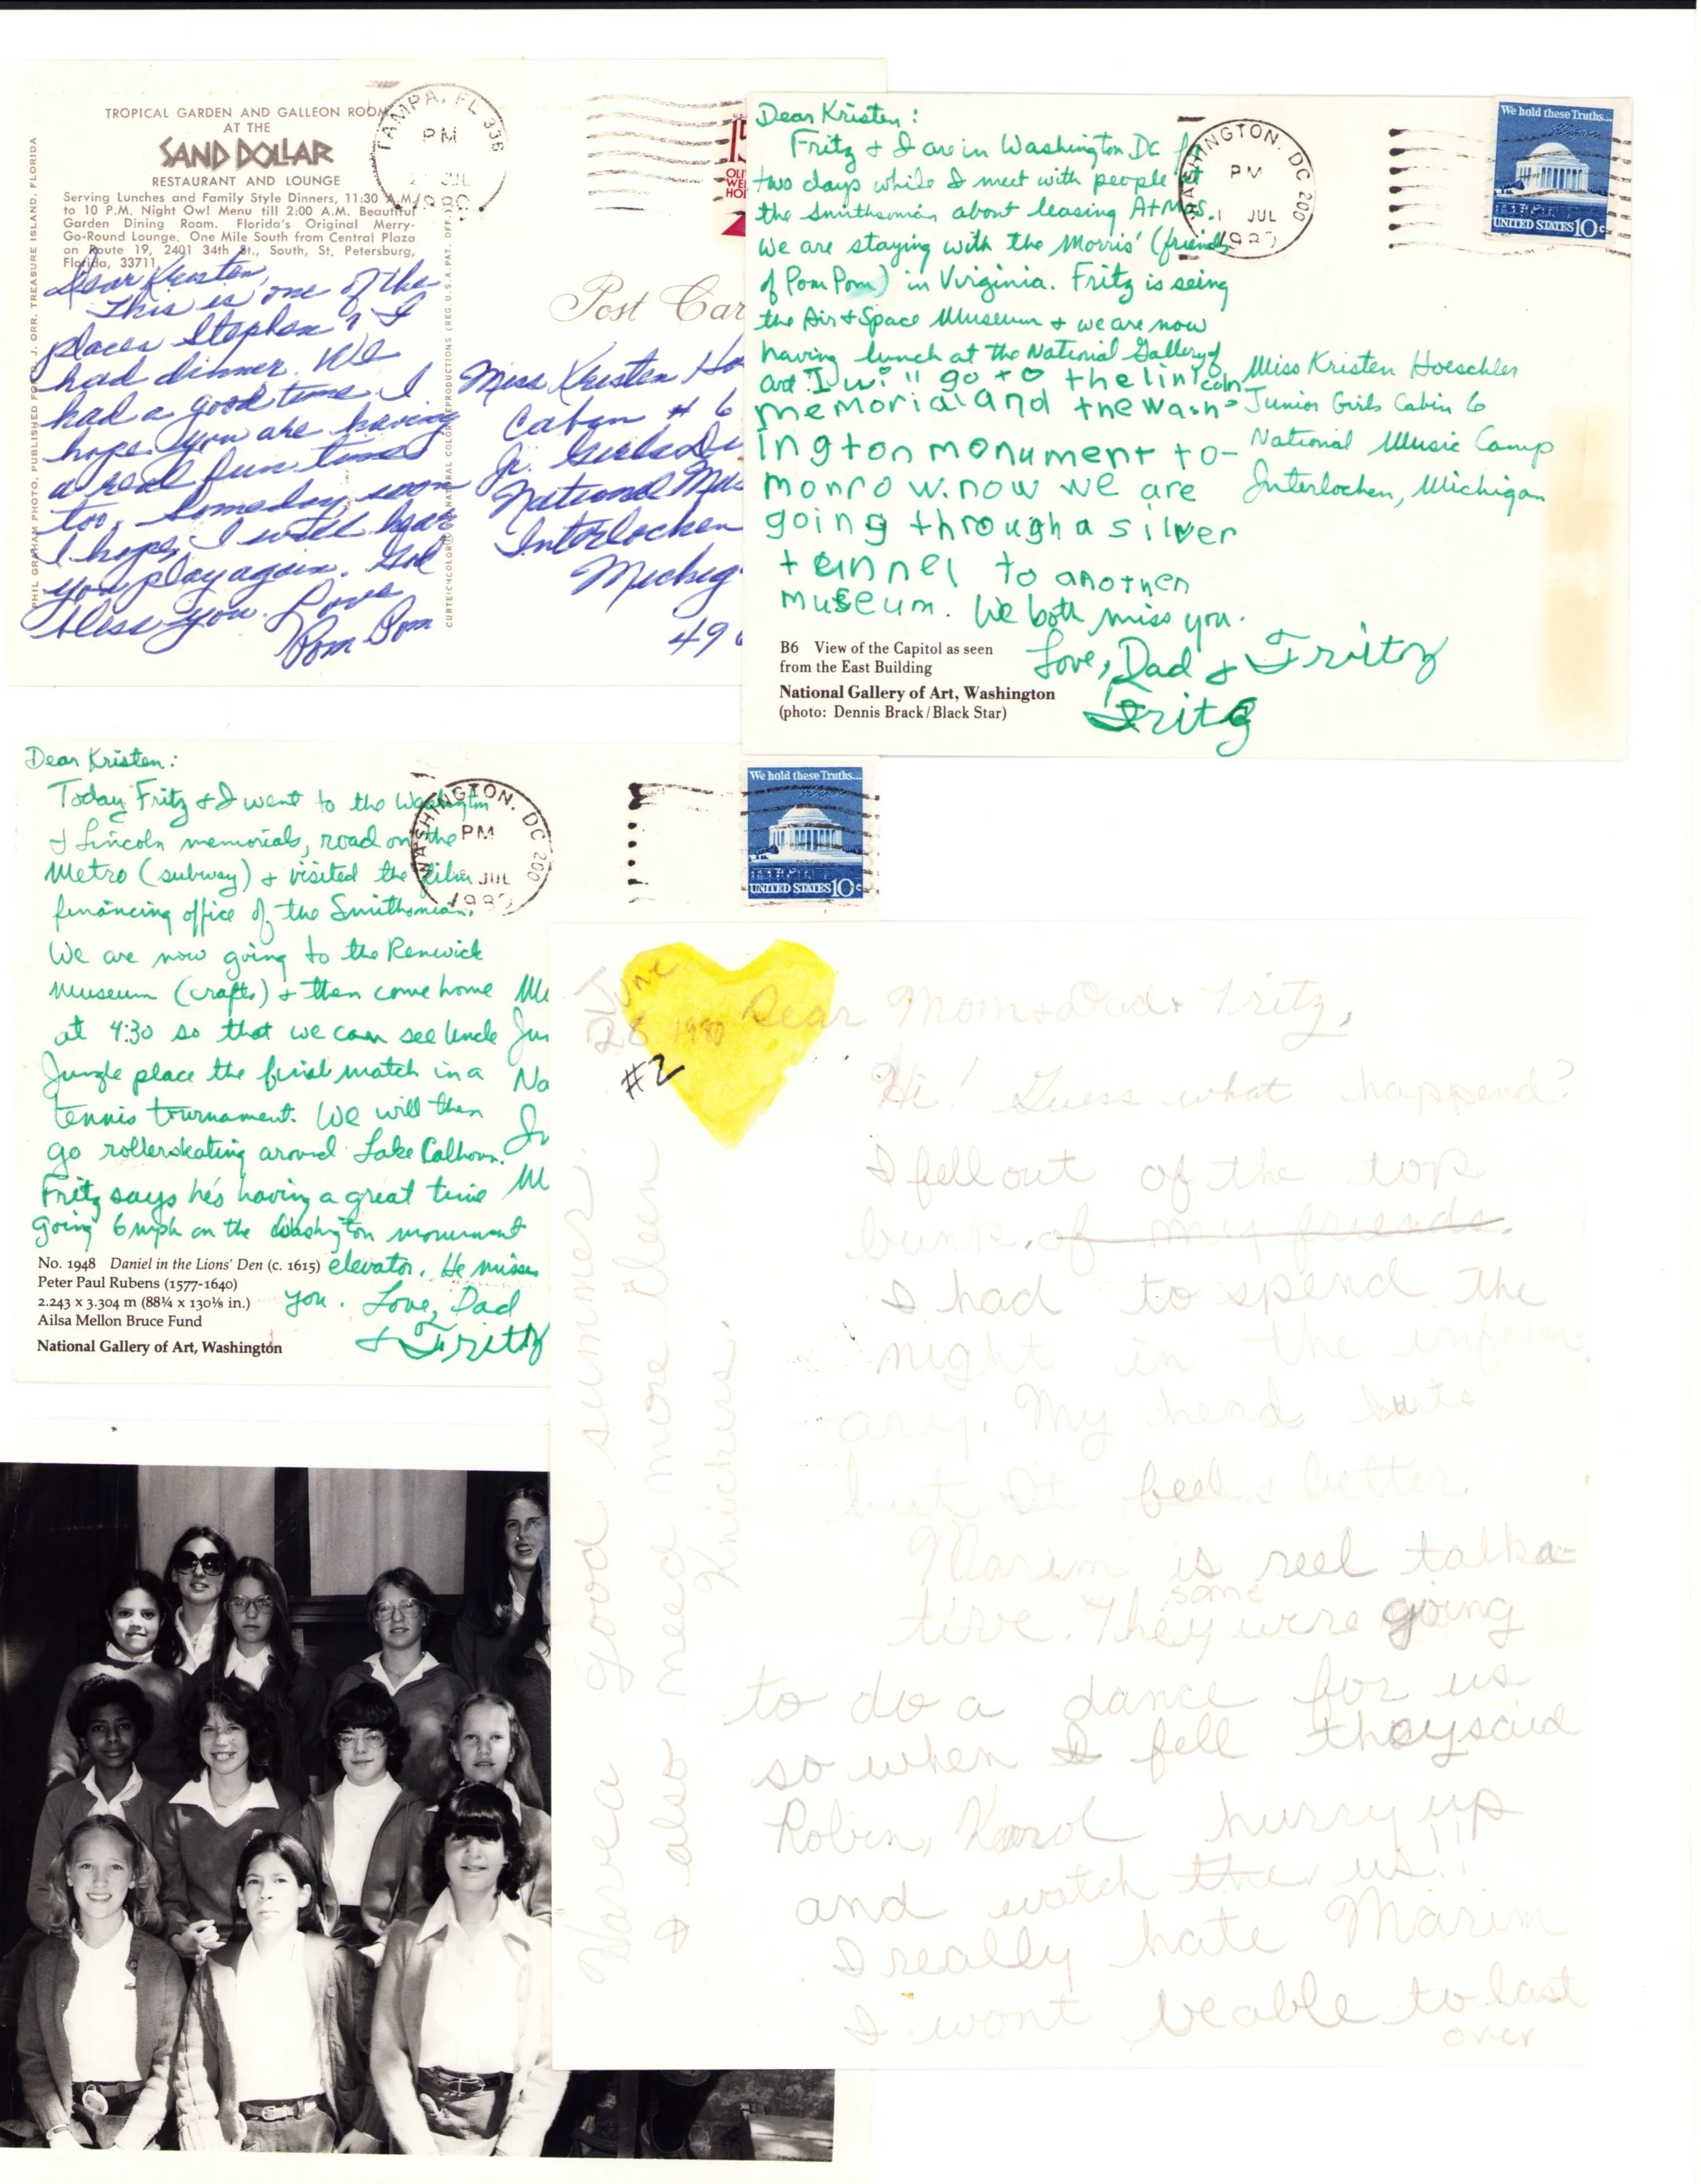 TROPICAL GARDEN AND GALLEON ROOM
AT THE
SAND DOLLAR
RESTAURANT AND LOUNGE
Serving Lunches and Family Style Dinners, 11:30 A.M.
to 10 P.M. Night Owl Menu till 2:00 A.M. Beautiful
Garden Dining Room. Florida's Original Merry-
Go-Round Lounge. One Mile South from Central Plaza
on Route 19, 2401 34th St., South, St. Petersburg,
Florida, 33711
PHIL GRAHAM PHOTO, PUBLISHED FOR J. ORR, TREASURE ISLAND, FLORIDA
TAMPA, FL 336
PM
JUL
Post Car
Dear Kristen,
This is one of the
places Stephen & I
had dinner. We
had a good time. I
hope you are having
a real fun time
too. Someday soon
I hope, I will hear
you play again. God
bless you. Love
Pom Pom
Miss Kristen Ho
Cabin # 6
Jr. Girls Di
National Mus
Interlochen
Michig
49
Dear Kristen:
Fritz & I are in Washington DC
two days while I meet with people at
the Smithsonian about leasing
We are staying with the Morris' (friends
of Pom Pom) in Virginia. Fritz is seeing
the Air & Space Museum & we are now
having lunch at the National Gallery of
art. I will go to the lincoln
memorial and the wash-
ington monument to-
monrow. now we are
going through a silver
tunnel to another
museum. We both miss you.
Love, Dad & Fritz
Fritz
B6 View of the Capitol as seen
from the East Building
National Gallery of Art, Washington
(photo: Dennis Brack/Black Star)
WASHINGTON, DC 200
PM
JUL
We hold these Truths...
UNITED STATES 10c
Miss Kristen Hoeschler
Junior Girls Cabin 6
National Music Camp
Interlochen, Michigan
Dear Kristen:
Today Fritz & I went to the Washington
& Lincoln memorials, road on the
Metro (subway) & visited the film
financing office of the Smithonian.
We are now going to the Renwick
Museum (crafts) & then come home
at 4:30 so that we can see Uncle
Jungle place the final match in a
tennis tournament. We will then
go rollerskating around Lake Calhoun.
Fritz says he's having a great time
going 6 mph on the Washington monument
elevator. He misses
you. Love, Dad
& Fritz
No. 1948 Daniel in the Lions' Den (c. 1615)
Peter Paul Rubens (1577-1640)
2.243 x 3.304 m (88¼ x 130⅛ in.)
Ailsa Mellon Bruce Fund
National Gallery of Art, Washington
WASHINGTON, DC 200
PM
JUL
We hold these Truths...
UNITED STATES 10c
June
28 1980
#2
Dear Mom & Dad & Fritz,
Hi! Guess what happend?
I fell out of the top
bunk. of my friends.
I had to spend the
night in the inferm-
ary. My head huts
but It feels better.
Marim is reel talka-
tive. They were going
some
to do a dance for us
so when I fell they said
Robin, Karol hurry up
and watch the us!!
I really hate Marim
I wont be able to last
over
Have a good summer.
I also need more cleen
Knickers.